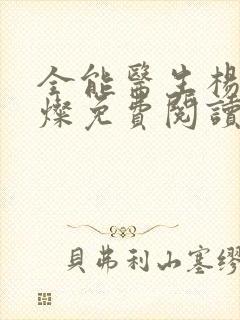 全能醫生楊
燦免費閱讀
貝弗利山塞繆